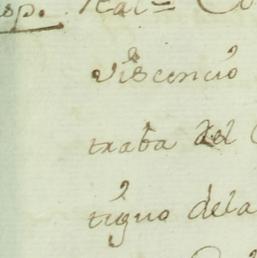 sp. Real= Co
viscencio
traba del
tiguo dela